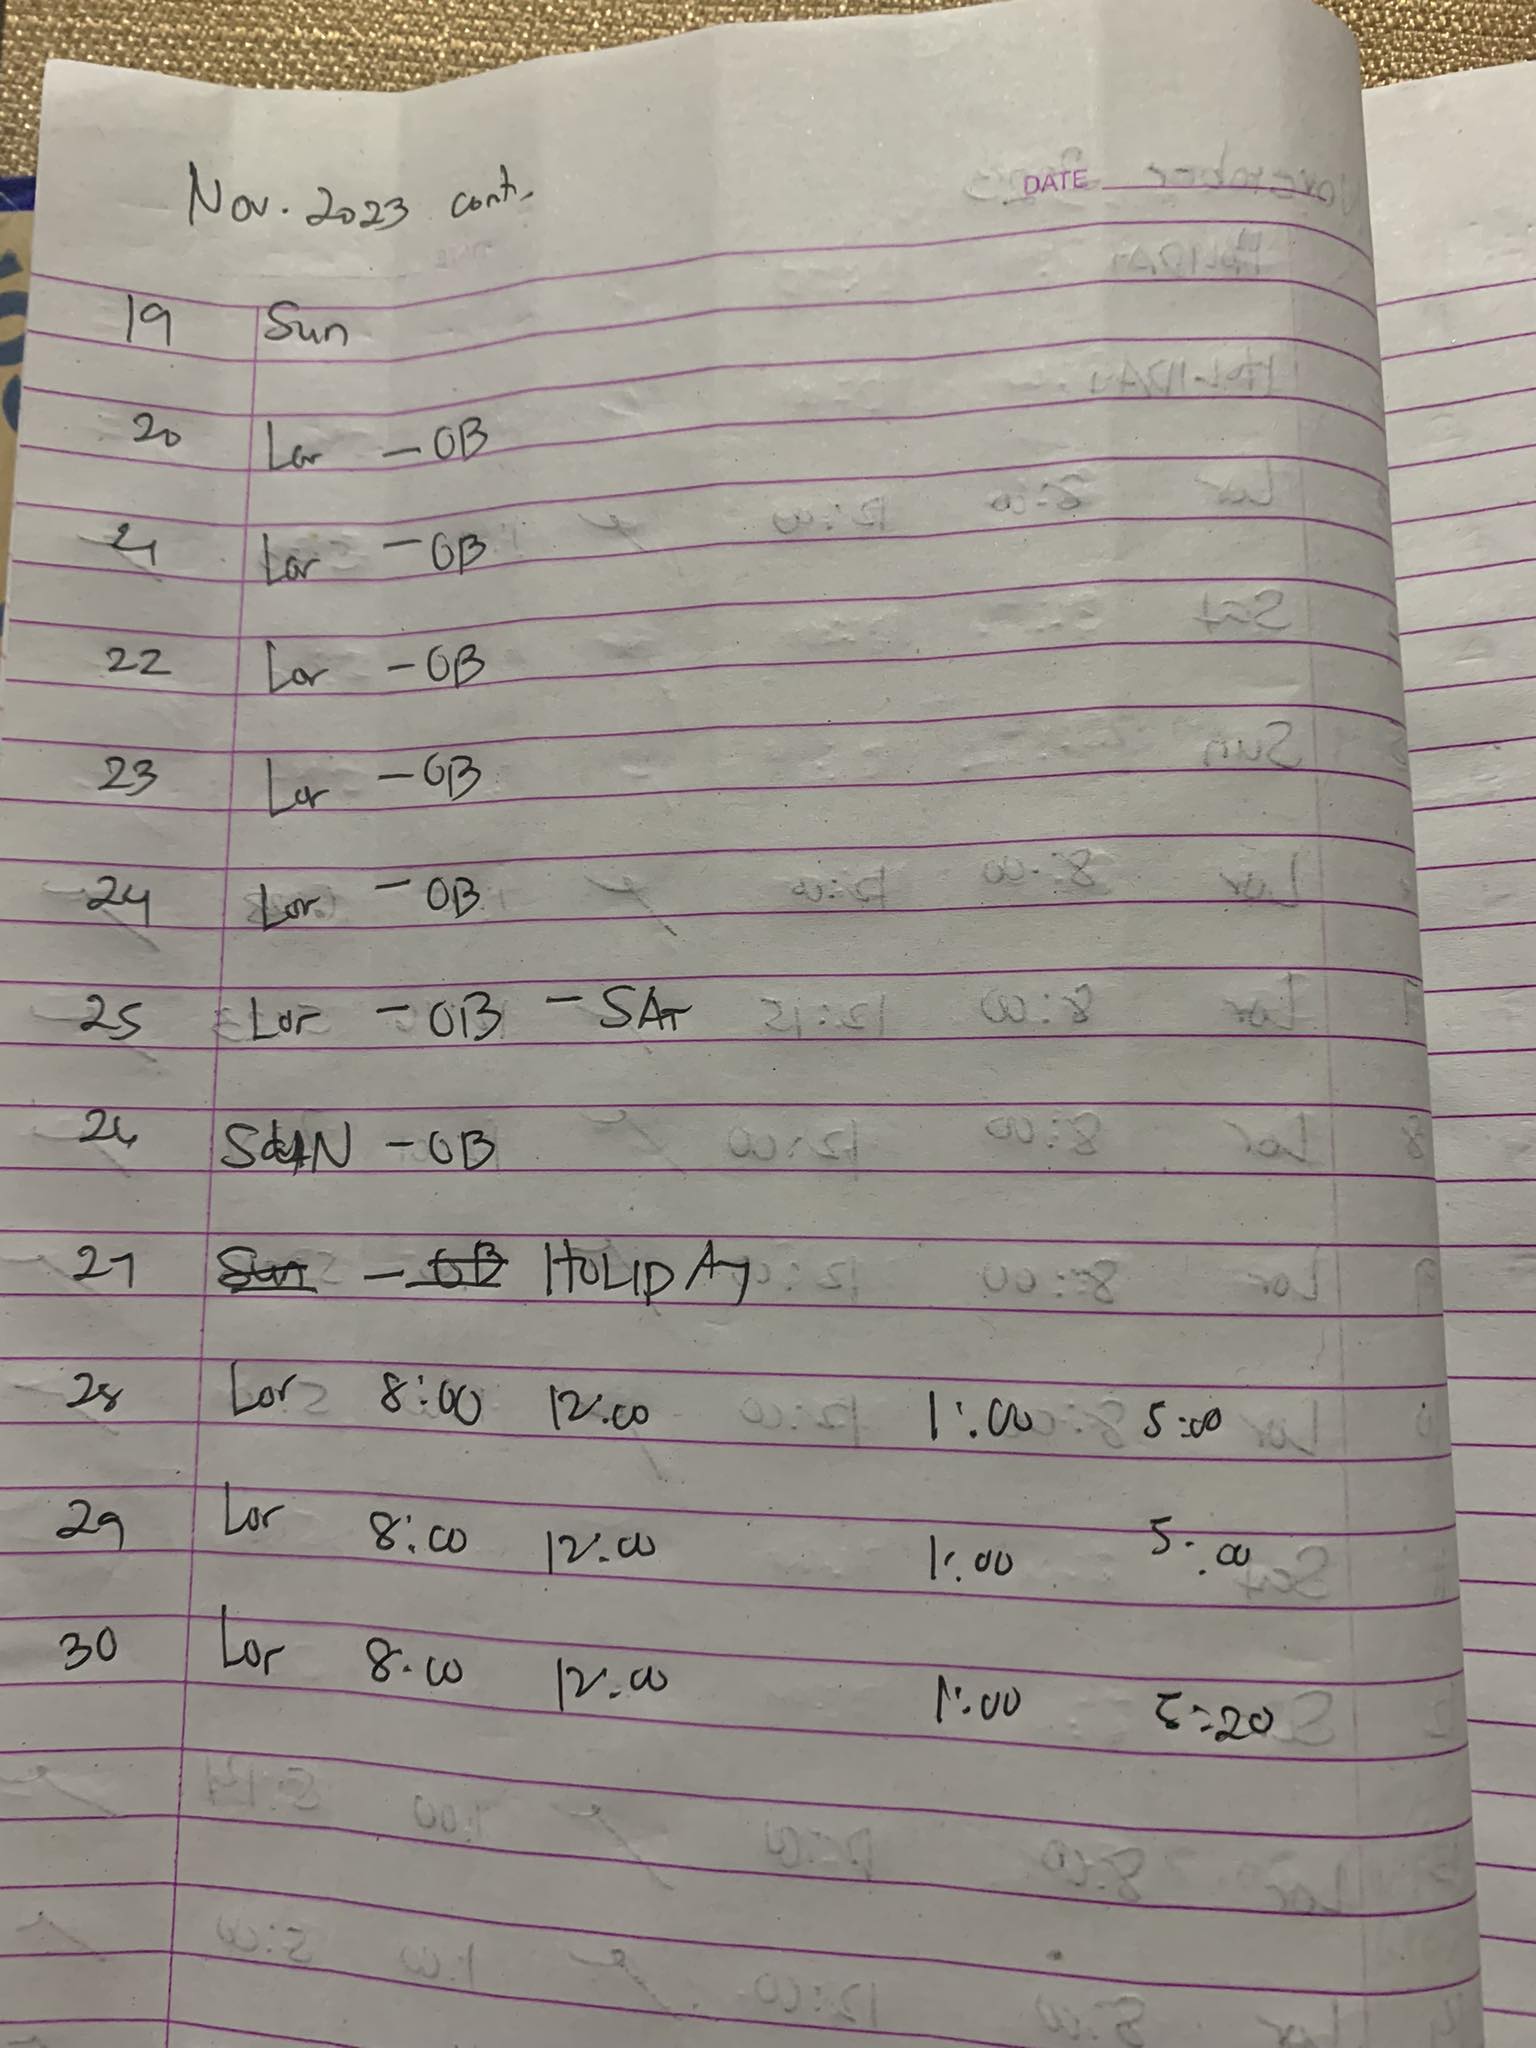 Nov. 2023 cont.
DATE
19 Sun
20 Lor - OB
21 Lor - OB
22 Lor - OB
23 Lor - OB
24 Lor - OB
25 Lor - OB - SAT
26 SUN - OB
27 Sun - OB HOLIDAY
28 Lor 8:00 12:00 1:00 5:00
29 Lor 8:00 12:00 1:00 5:00
30 Lor 8:00 12:00 1:00 5:20